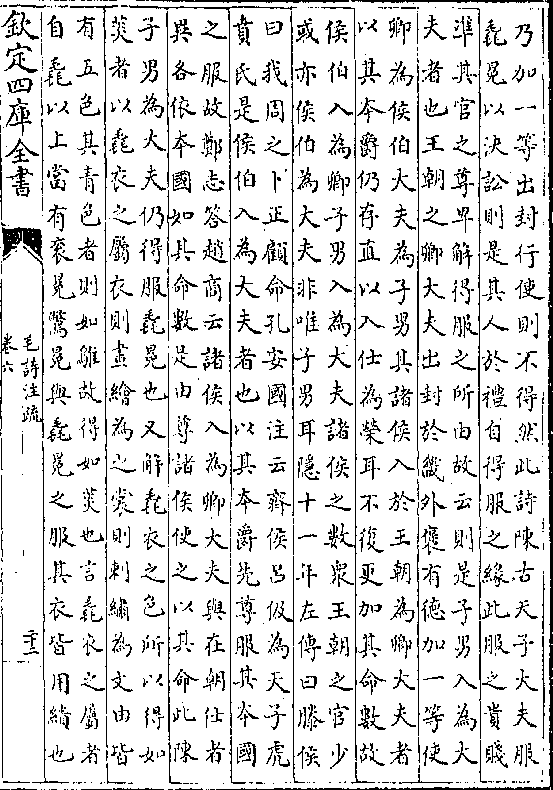 乃加一等出封行使則不得然此詩陳古天子大夫服
毳冕以決訟則是其人於禮自得服之緣此服之貴賤
準其官之尊卑解得服之所由故云則是子男入為大
夫者也王朝之卿大夫出封於畿外褒有德加一等使
卿為侯伯大夫為子男其諸侯入於王朝為卿大夫者
以其本爵仍存直以入仕為榮耳不復更加其命數故
侯伯入為卿子男入為大夫諸侯之數衆王朝之官少
或亦侯伯為大夫非唯子男耳隱十一年左傳曰滕侯
曰我周之卜正顧命孔安國注云齊侯呂伋為天子虎
賁氏是侯伯入為大夫者也以其本爵先尊服其本國
之服故鄭志答趙商云諸侯入為卿大夫與在朝仕者
異各依本國如其命數是由尊諸侯使之以其命此陳
子男為大夫仍得服毳冕也又解毳衣之色所以得如
菼者以毳衣之屬衣則畫繪為之裳則刺繡為文由皆
有五色其青色者則如鵻故得如菼也言毳衣之屬者
自毳以上當有衮冕鷩冕與毳冕之服其衣皆用繢也
欽定四庫全書
毛詩注疏
卷六
二十三